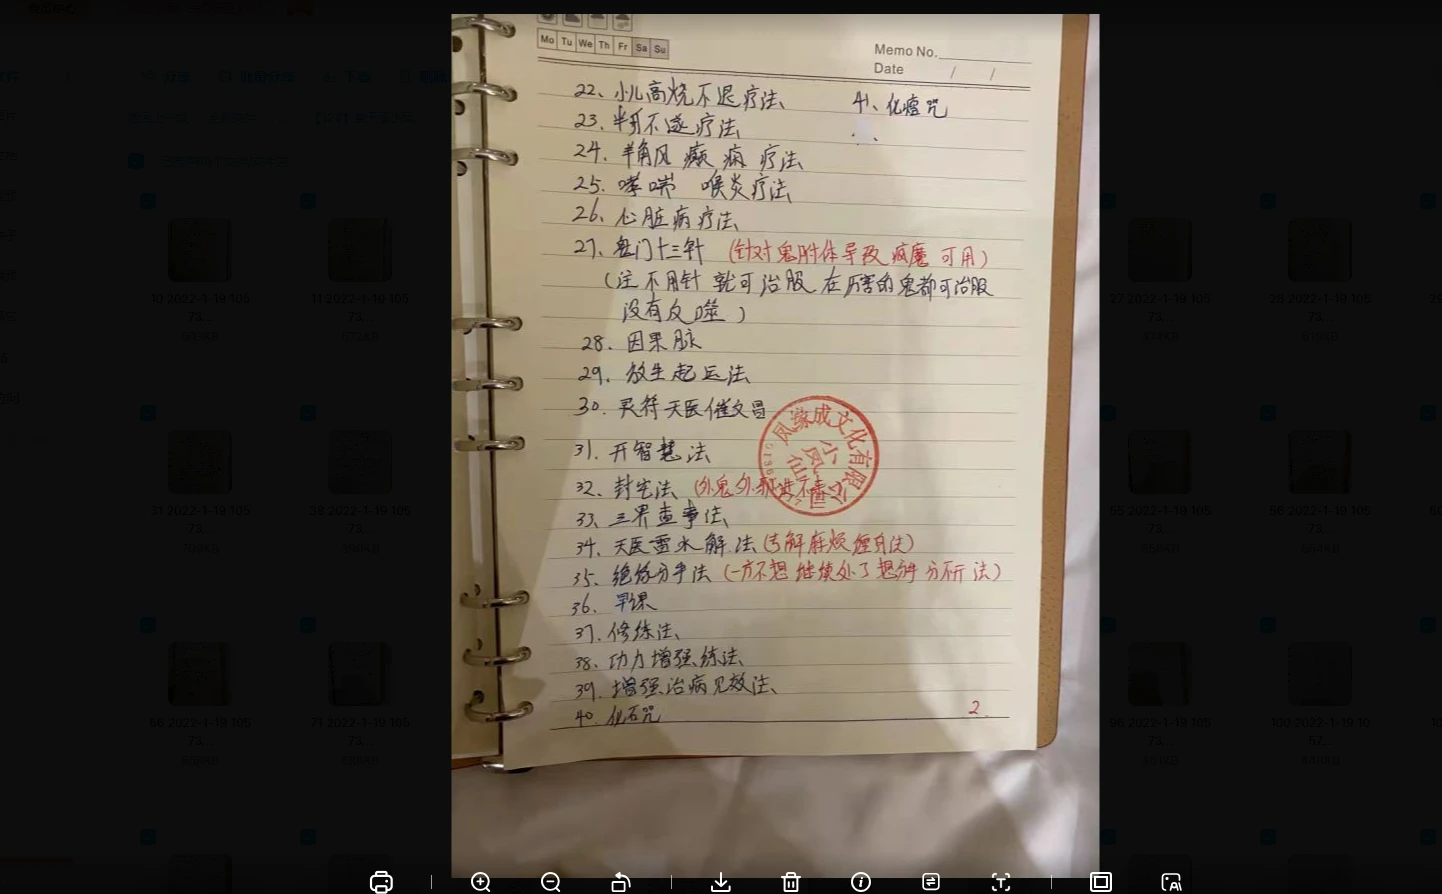 Mo Tu We Th Fr Sa Su
Memo No.
Date / /
22、小儿高烧不退疗法、
41、化瘩咒
23、半身不遂疗法
24、羊角风 癫痫 疗法
25、哮喘 喉炎疗法
26、心脏病疗法
27、鬼门十三针 (针对鬼附体导致疯魔 可用)
(注 不用针 就可治服 在厉害的鬼都可治服
没有反噬)
28、因果脉
29、放生起运法
30、灵符天医催文昌
31、开智慧法
32、封宅法
33、三界查事法
34、天医雷水解法
35、绝缘分手法
36、早课
37、修练法
38、功力增强练法
39、增强治病见效法
40、化石咒
2.
凤缘成文化有限公司
10 2022-1-19 105
73...
27 2022-1-19 105
73...
31 2022-1-19 105
73...
56 2022-1-19 105
73...
71 2022-1-19 105
73...
96 2022-1-19 105
73...